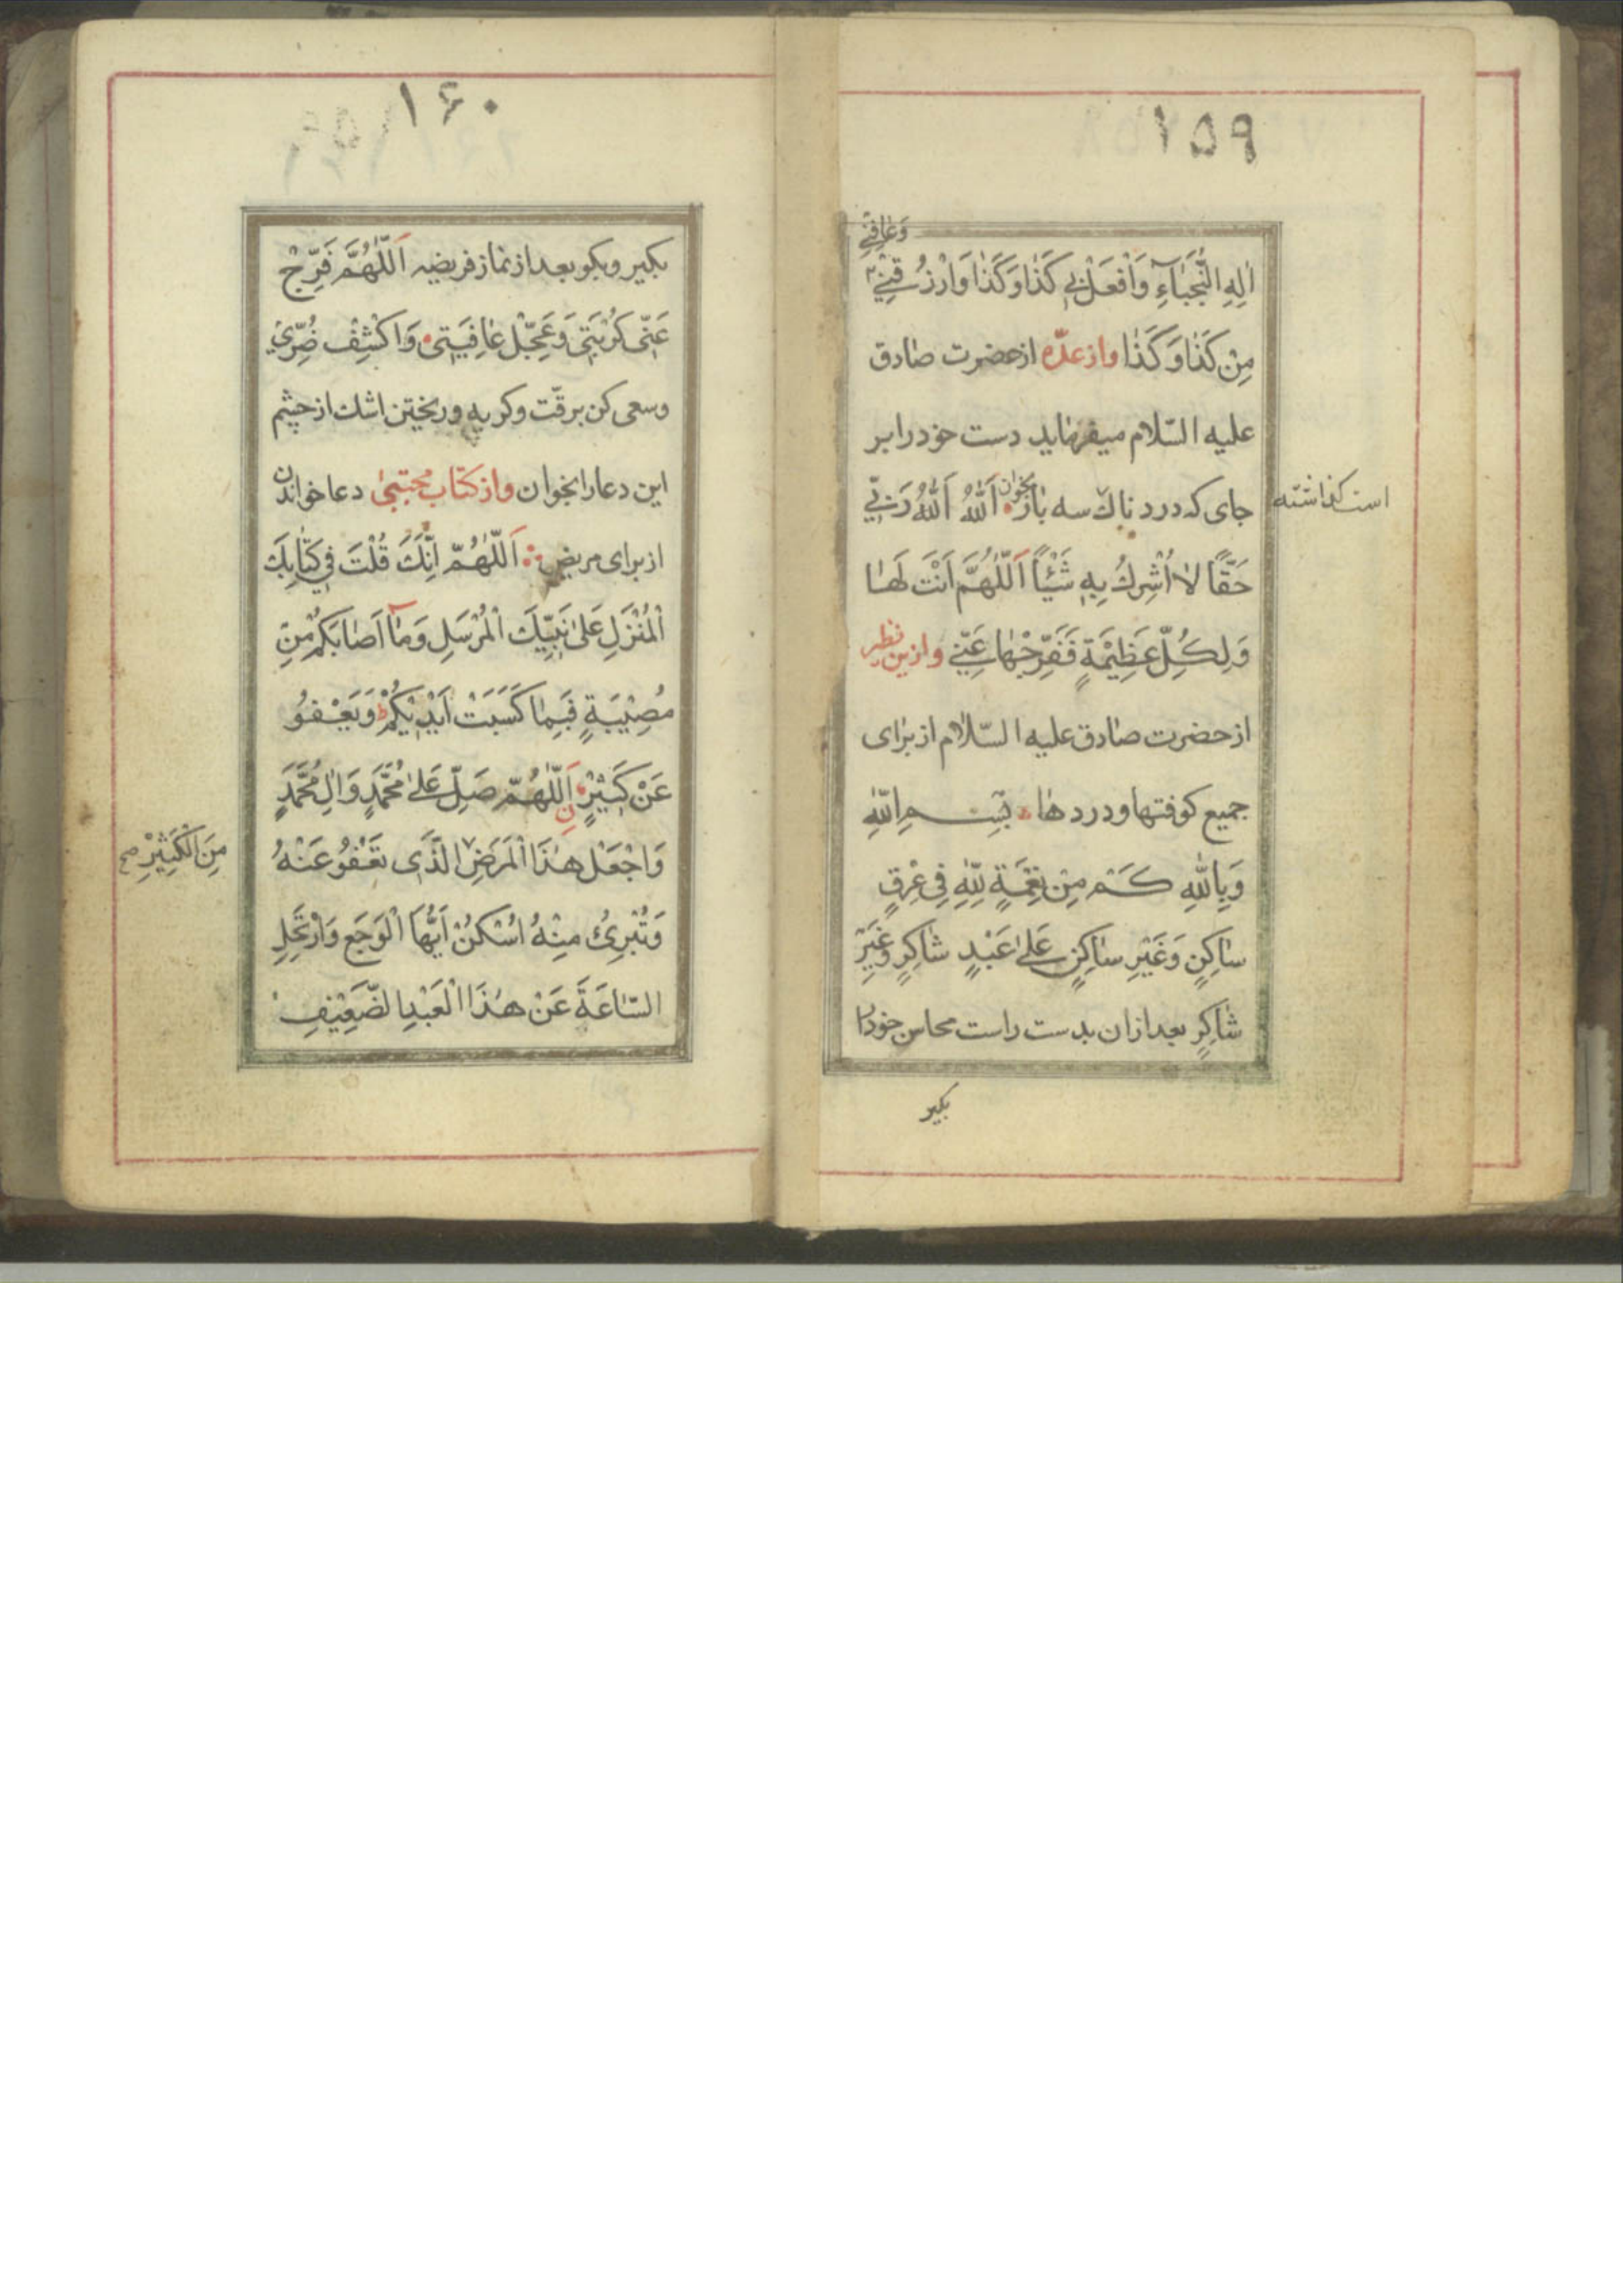 ۱۵۹
وَعَافِنِي
اٰلِهِ النُّجَبَآءِ وَافْعَلْ بِي كَذٰا وَكَذٰا وَارْزُقْنِي
مِنْ كَذٰا وَكَذٰا وازعدّه ازحضرت صادق
عليه السّلام ميفرمايد دست خودرا بر
جاى كه دردناك سه بار بخوان اَللّٰهُ اَللّٰهُ رَبّي
است گذاشته
حَقًّا لاٰ اُشْرِكُ بِهِ شَيْئًا اَللّٰهُمَّ اَنْتَ لَهٰا
وَلِكُلِّ عَظِيْمَةٍ فَفَرِّجْهٰا عَنّي وازين نظير
ازحضرت صادق عليه السّلام از براى
جميع كوفتها ودردها بِسْمِ اللّٰهِ
وَبِاللّٰهِ كَمْ مِنْ نِعْمَةٍ لِلّٰهِ فِي عِرْقٍ
سٰاكِنٍ وَغَيْرِ سٰاكِنٍ عَلىٰ عَبْدٍ شٰاكِرٍ وَغَيْرِ
شٰاكِرٍ بعدازان بدست راست محاسن خودرا
بكير
۱۶۰
بكير وبكو بعدازنماز فريضه اَللّٰهُمَّ فَرِّجْ
عَنّي كُرْبَتِي وَعَجِّلْ عٰافِيَتِي وَاكْشِفْ ضُرِّي
وسعى كن برقّت وكريه وريختن اشك از چشم
اين دعارا بخوان وازكتاب مجتبىٰ دعا خواندن
ازبراى مريض اَللّٰهُمَّ اِنَّكَ قُلْتَ فِي كِتٰابِكَ
الْمُنْزَلِ عَلىٰ نَبِيِّكَ الْمُرْسَلِ وَمٰا اَصٰابَكُمْ مِنْ
مُصِيْبَةٍ فَبِمٰا كَسَبَتْ اَيْدِيْكُمْ وَيَعْفُو
عَنْ كَثِيْرٍ اَللّٰهُمَّ صَلِّ عَلىٰ مُحَمَّدٍ وَاٰلِ مُحَمَّدٍ
وَاجْعَلْ هٰذَا الْمَرَضَ الَّذي تَعْفُو عَنْهُ
مِنَ الْكَثِيْرِ صح
وَتُبْرِئُ مِنْهُ اُسْكُنْ اَيُّهَا الْوَجَعُ وَارْتَحِلِ
السّٰاعَةَ عَنْ هٰذَا الْعَبْدِ الضَّعِيْفِ